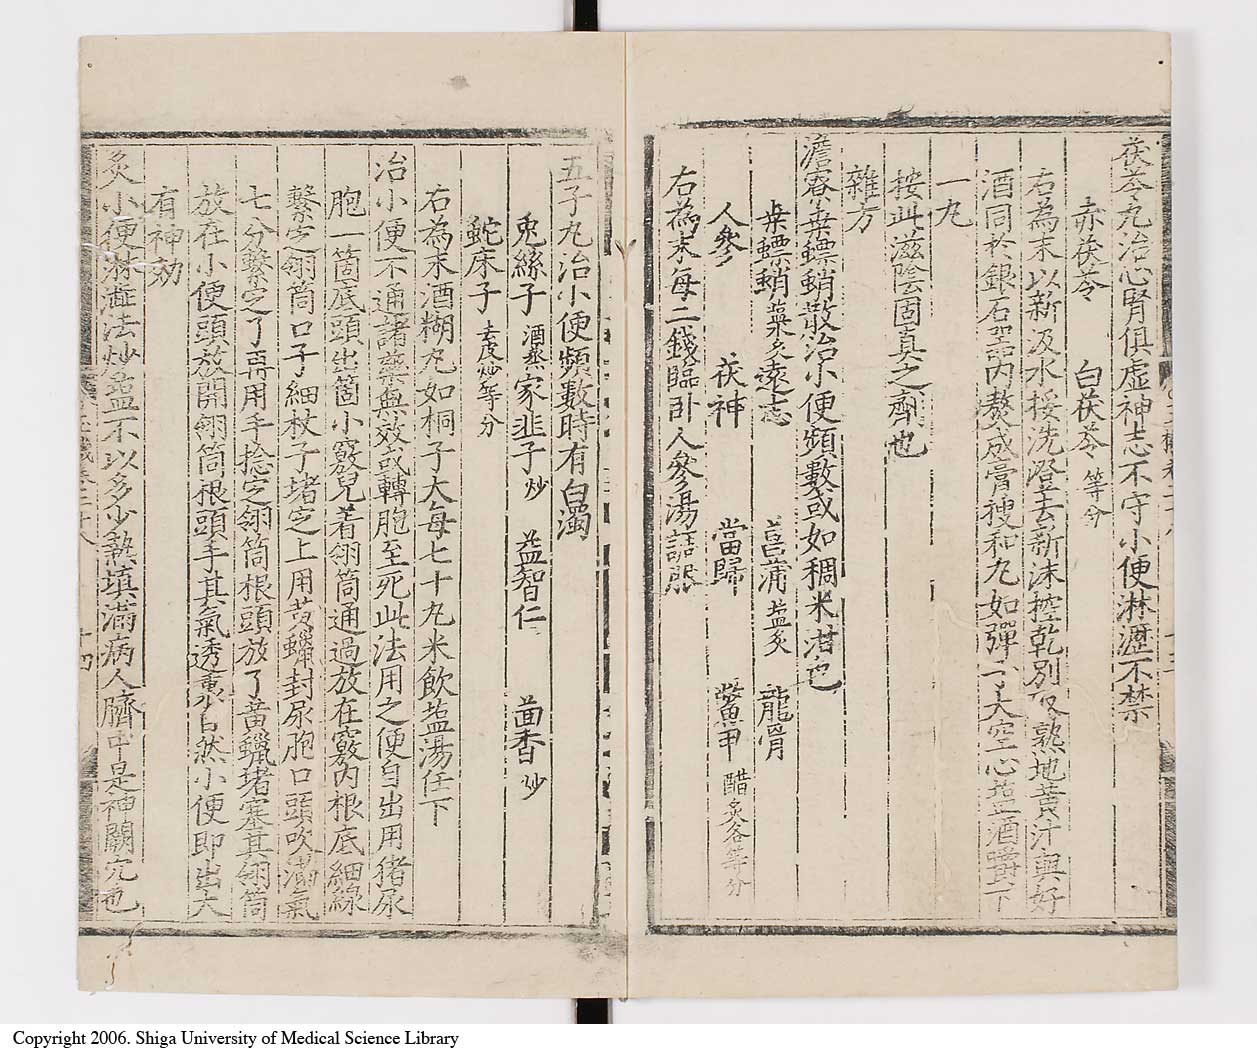 茯苓丸治心腎俱虛神志不守小便淋瀝不禁
赤茯苓 白茯苓等分
右為末以新汲水挼洗澄去新沫控乾別取熟地黃汁與好
酒同於銀石器內熬成膏搜和丸如彈子大空心盐酒嚼下
一丸
按此滋陰固真之劑也
雜方
澹寮桒螵蛸散治小便頻數或如稠米泔也
桒螵蛸 遠志 菖蒲盐炙 龍骨
人參 茯神 當歸 鱉甲醋炙各等分
右為末每二錢臨卧人參湯調服
五子丸治小便頻數時有白濁
兎絲子酒蒸 家韭子炒 益智仁 茴香炒
蛇床子去皮炒等分
右為末酒糊丸如桐子大每七十丸米飲盐湯任下
治小便不通諸藥無效或轉胞至死此法用之便自出用猪尿
胞一箇底頭出箇小竅兒著翎筒通過放在竅內根底細線
繫定翎筒口子細杖子堵定上用黃蠟封尿胞口頭吹滿氣
七分繫定了再用手捻定翎筒根頭放了黃蠟堵塞其翎筒
放在小便頭放開翎筒根頭手其氣透裏自然小便即出大
有神効
炙小便淋澁法炒盐不以多少熱填滿病人臍中是神闕穴也
Copyright 2006. Shiga University of Medical Science Library